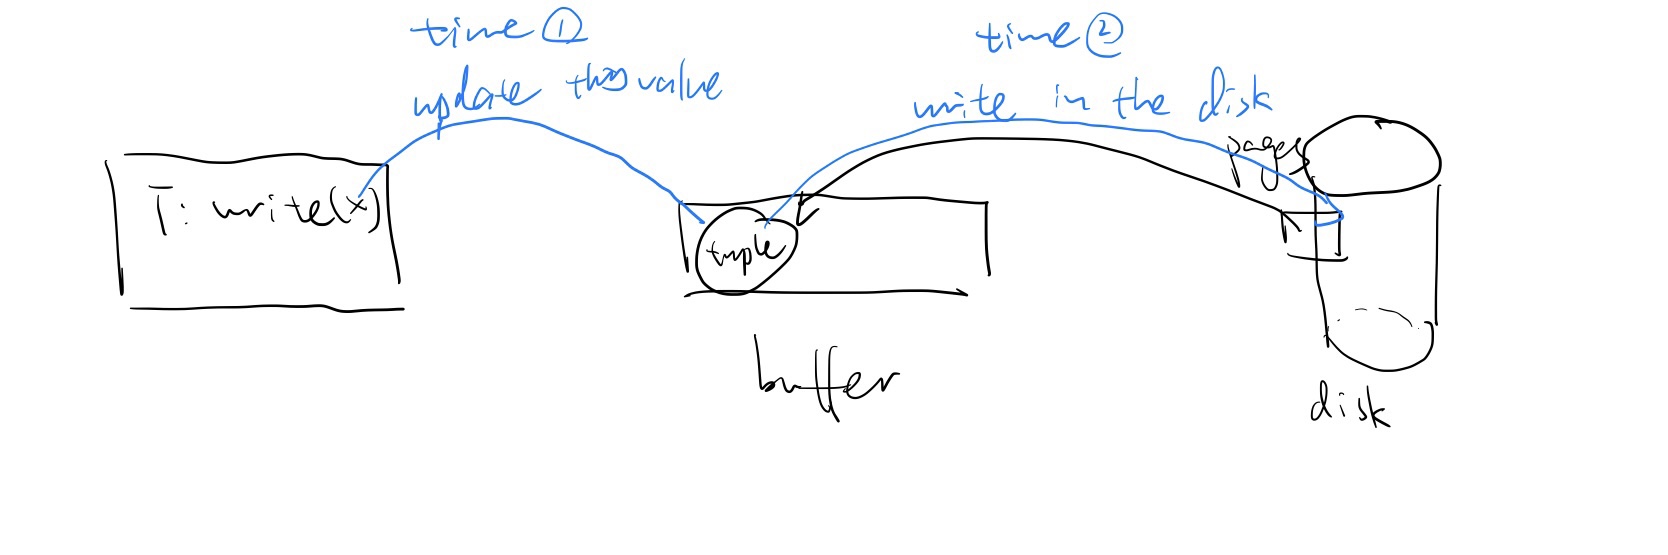 time ①
update this value
time ②
write in the disk
pages
T: write(x)
tuple
buffer
disk